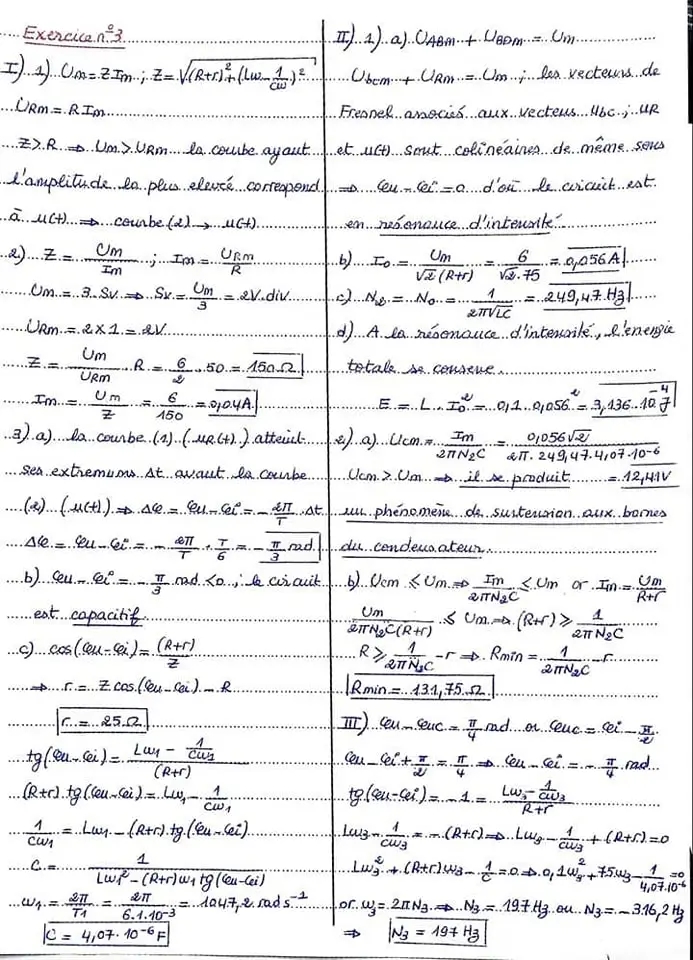 Exercice n°3
I) 1) Um = Z Im ; Z = √((R+r)² + (Lω - 1/Cω)²)
URm = R Im
Z > R ⇒ Um > URm la courbe ayant
l'amplitude la plus elevcé correspond
à u(t) ⇒ courbe (2) → u(t)
2) Z = Um/Im ; Im = URm/R
Um = 3.Sv ⇒ Sv = Um/3 = 2V.div
URm = 2 x 1 = 2V
Z = Um/URm . R = 6/2 . 50 = 150 Ω
Im = Um/Z = 6/150 = 0,04A
3) a) la courbe (1) (uR(t)) atteint
ses extremums Δt avant la courbe
(2) (u(t)) ⇒ Δφ = φu - φi = - 2π/T . Δt
Δφ = φu - φi = - 2π/T . T/6 = - π/3 rad
b) φu - φi = - π/3 rad < 0 ; le circuit
est capacitif
c) cos(φu - φi) = (R+r)/Z
⇒ r = Z cos(φu - φi) - R
r = 25 Ω
tg(φu - φi) = (Lω1 - 1/Cω1)/(R+r)
(R+r) tg(φu - φi) = Lω1 - 1/Cω1
1/Cω1 = Lω1 - (R+r) tg(φu - φi)
C = 1/(Lω1² - (R+r)ω1 tg(φu - φi))
ω1 = 2π/T1 = 2π/6.1.10⁻³ = 1047,2 rad s⁻¹
C = 4,07.10⁻⁶ F
II) 1) a) UABm + UBDm = Um
Ubcm + URm = Um ; les vecteurs de
Fresnel associés aux vecteurs ubc ; uR
et u(t) sont colinéaires de même sens
⇒ φu - φi = 0 d'où le circuit est
en résonance d'intensité
b) I0 = Um/(√2 (R+r)) = 6/(√2 . 75) = 0,056A
c) N2 = N0 = 1/(2π√LC) = 249,47 Hz
d) A la résonance d'intensité, l'énergie
totale se conserve
E = L . I0² = 0,1 . 0,056² = 3,136.10⁻⁴ J
2) a) Ucm = Im/(2πN2C) = 0,056√2/(2π . 249,47 . 4,07.10⁻⁶)
Ucm > Um ⇒ il se produit = 12,41V
un phénomène de surtension aux bornes
du condensateur.
b) Ucm ≤ Um ⇒ Im/(2πN2C) ≤ Um or Im = Um/(R+r)
Um/(2πN2C(R+r)) ≤ Um ⇒ (R+r) ≥ 1/(2πN2C)
R ≥ 1/(2πN2C) - r ⇒ Rmin = 1/(2πN2C) - r
Rmin = 131,75 Ω
III) φu - φuc = π/4 rad or φuc = φi - π/2
φu - φi + π/2 = π/4 ⇒ φu - φi = - π/4 rad
tg(φu - φi) = -1 = (Lω3 - 1/Cω3)/(R+r)
Lω3 - 1/Cω3 = - (R+r) ⇒ Lω3 - 1/Cω3 + (R+r) = 0
Lω3² + (R+r)ω3 - 1/C = 0 ⇒ 0,1ω3² + 75ω3 - 1/4,07.10⁻⁶ = 0
or ω3 = 2πN3 ⇒ N3 = 197 Hz ou N3 = - 316,2 Hz
⇒ N3 = 197 Hz